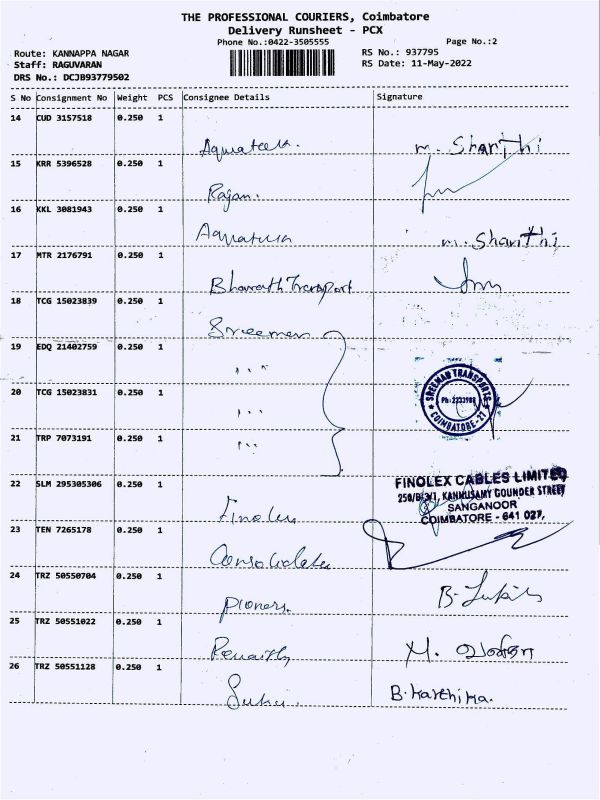 THE PROFESSIONAL COURIERS, Coimbatore
Delivery Runsheet - PCX
Phone No.:0422-3505555
Page No.:2
Route: KANNAPPA NAGAR
RS No.: 937795
Staff: RAGUVARAN
RS Date: 11-May-2022
DRS No.: DCJB93779502
S No Consignment No Weight PCS Consignee Details Signature
14 CUD 3157518 0.250 1
m. Shanthi
15 KRR 5396528 0.250 1
Rajan.
16 KKL 3081943 0.250 1
m. Shanthi
17 MTR 2176791 0.250 1
Bharath Transport
18 TCG 15023839 0.250 1
Sreeman
19 EDQ 21402759 0.250 1
20 TCG 15023831 0.250 1
SREEMAN TRANSPORTS
Ph: 2333988
COIMBATORE-27
21 TRP 7073191 0.250 1
22 SLM 295305306 0.250 1
FINOLEX CABLES LIMITED
250/B-3/1, KANNUSAMY GOUNDER STREET
SANGANOOR
COIMBATORE - 641 027,
Finolex
23 TEN 7265178 0.250 1
24 TRZ 50550704 0.250 1
Pioners.
25 TRZ 50551022 0.250 1
26 TRZ 50551128 0.250 1
B. Karthika.